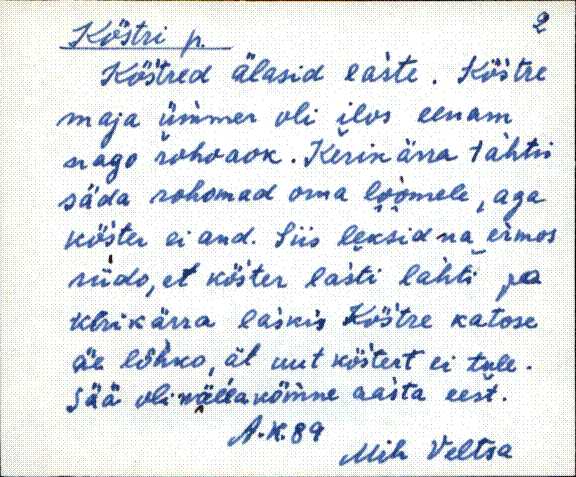 2
Köstri p.
Köstred älasid easte. Köstre
maja ümmer oli ilos eenam
nago rohoaok. Kerik ärra tahtis
säda rohomad oma loomele, aga
köster ei and. Siis leksid na eimos
riido, et köster lasti lahti ja
kerik ärra laskis Köstre katose
äe lohko, ät uut köstert ei tule.
Sää oli nällakömne aasta eest.
A.K. 89
Mih Veltsa